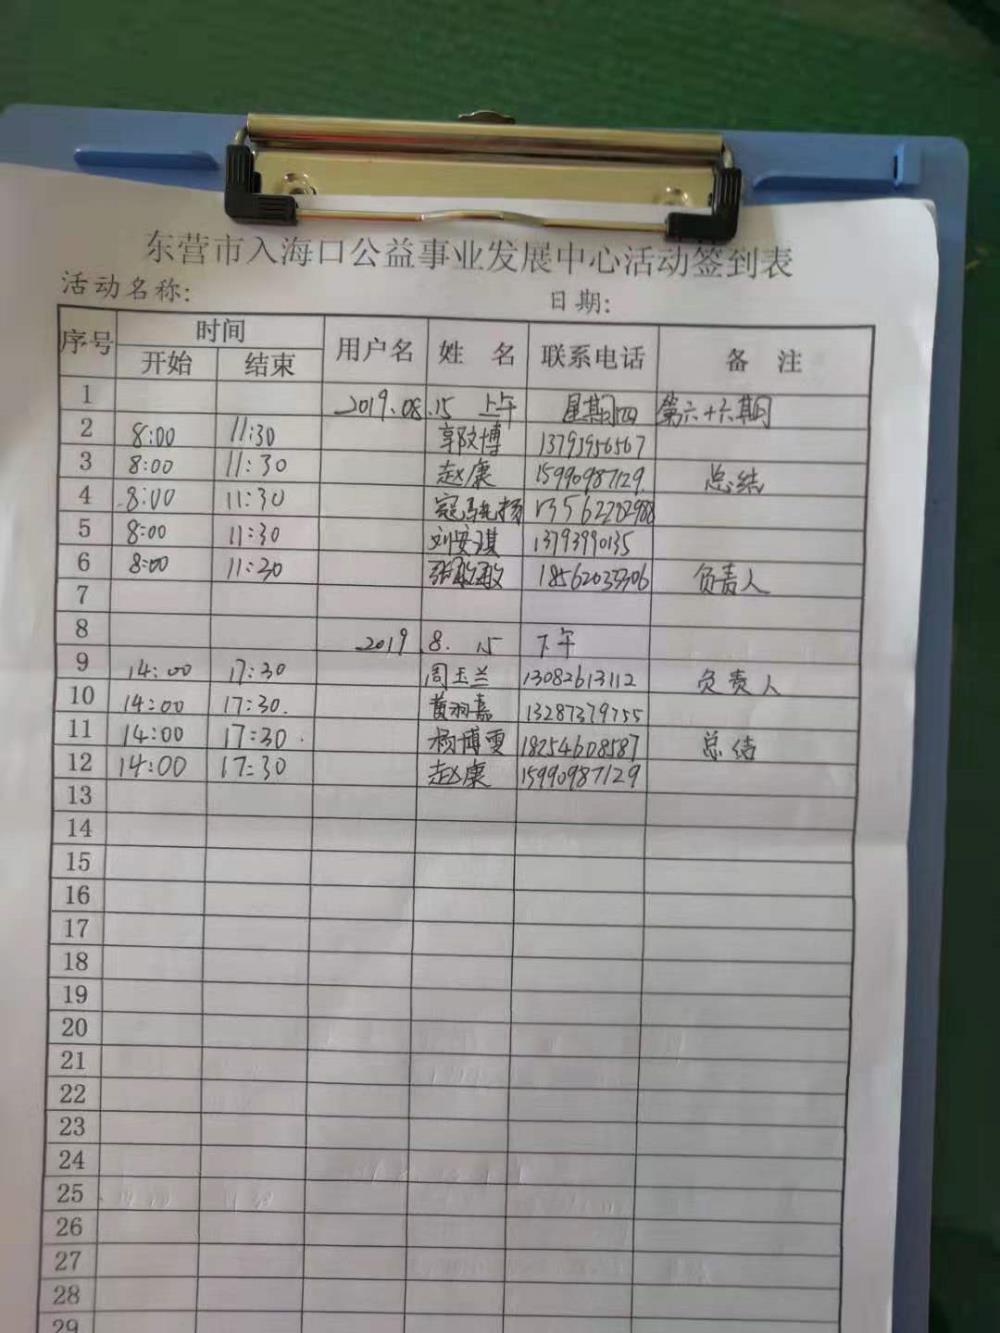 东营市入海口公益事业发展中心活动签到表
活动名称: 日期:
序号 时间 用户名 姓 名 联系电话 备 注
开始 结束
1 2019.08.15 上午 星期四 第六十六期
2 8:00 11:30 郭文博 13793956567
3 8:00 11:30 赵康 15990987129 总结
4 8:00 11:30 扬
5 8:00 11:30 刘安淇 13793990135
6 8:00 11:30 张敏敏 负责人
7
8 2019.8.15 下午
9 14:00 17:30 周玉兰 13082613112 负责人
10 14:00 17:30. 黄羽嘉 13287379755
11 14:00 17:30. 杨博雯 18254608587 总结
12 14:00 17:30 赵康 15990987129
13
14
15
16
17
18
19
20
21
22
23
24
25
26
27
28
29